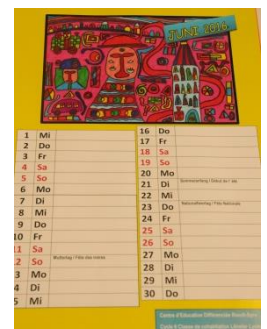 JUNI 2016
1 Mi
2 Do
3 Fr
4 Sa
5 So
6 Mo
7 Di
8 Mi
9 Do
10 Fr
11 Sa
12 So Muttertag / Fête des mères
3 Mo
4 Di
5 Mi
16 Do
17 Fr
18 Sa
19 So
20 Mo
21 Di
22 Mi
23 Do Nationalfeiertag / Fête Nationale
24 Fr
25 Sa
26 So
27 Mo
28 Di
29 Mi
30 Do
Centre d'Education Différenciée